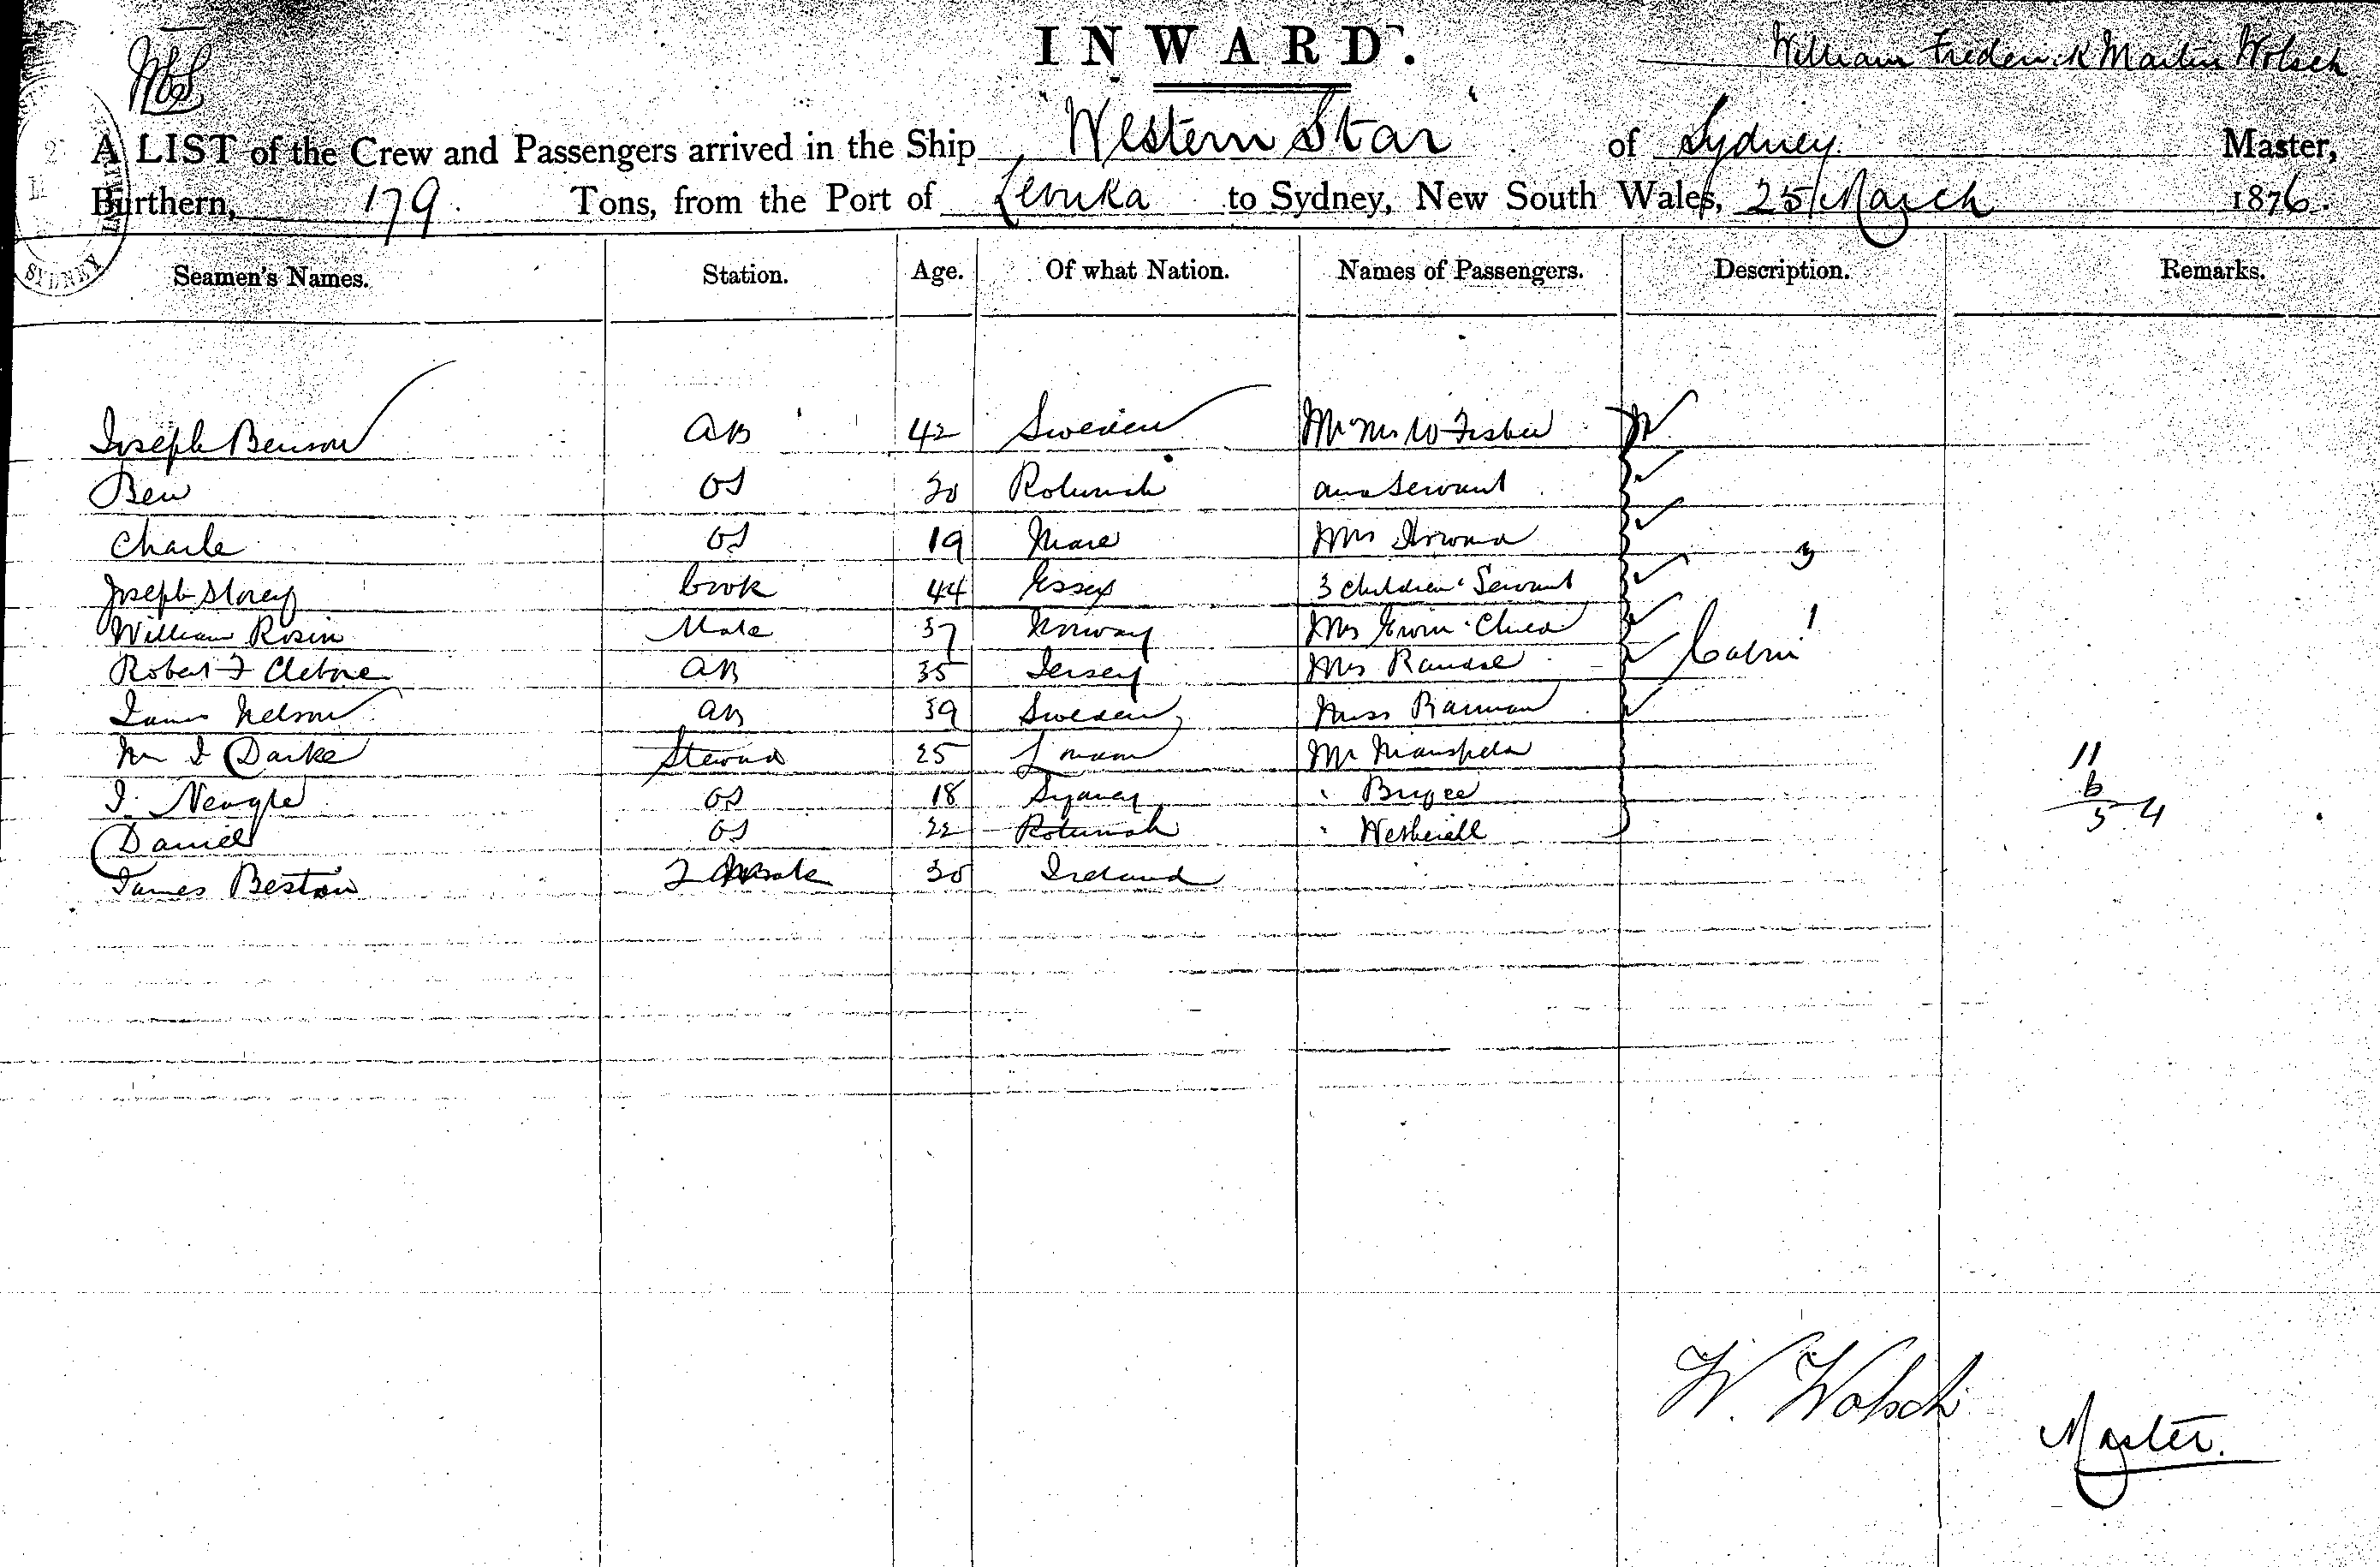 INWARD.
William Frederick Martin Wolsch
A LIST of the Crew and Passengers arrived in the Ship "Western Star" of Sydney Master,
Burthern, 179. Tons, from the Port of Levuka to Sydney, New South Wales, 25 March 1876.
SYDNEY
Seamen's Names. Station. Age. Of what Nation. Names of Passengers. Description. Remarks.
Joseph Benson AB 42 Sweden Mr Mrs W Fisher
Ben OS 20 Rotumah and Servant
Charle OS 19 Mare Mrs 3
Joseph Storey Cook 44 Essex 3 children Servant
William Rosin Mate 37 Norway Mrs Child 1
Robert F 35 Jersey Mrs Randal Cabin
AB
James Nelson AB 39 Sweden Miss
Darke Steward 25 Mr 11
J. Neagle OS 18 Sydney " Bryce 6
Daniel OS 22 Rotumah " Wetherill 5 4
James Beston 2 Mate 30 Ireland
W. Wolsch
Master.